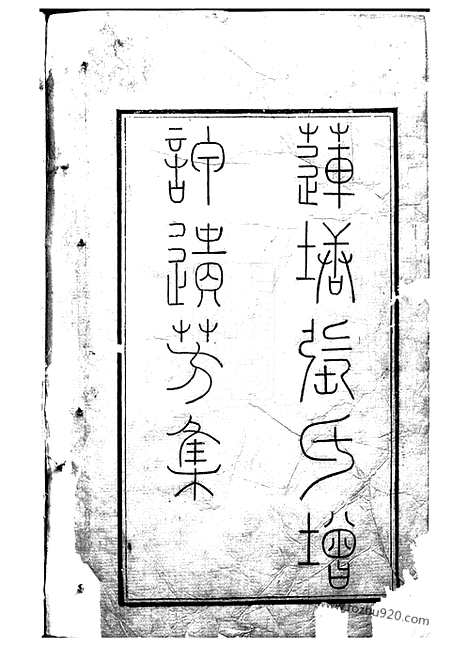 蓮塘張氏增
訂遺芳集
www.fozhu920.com